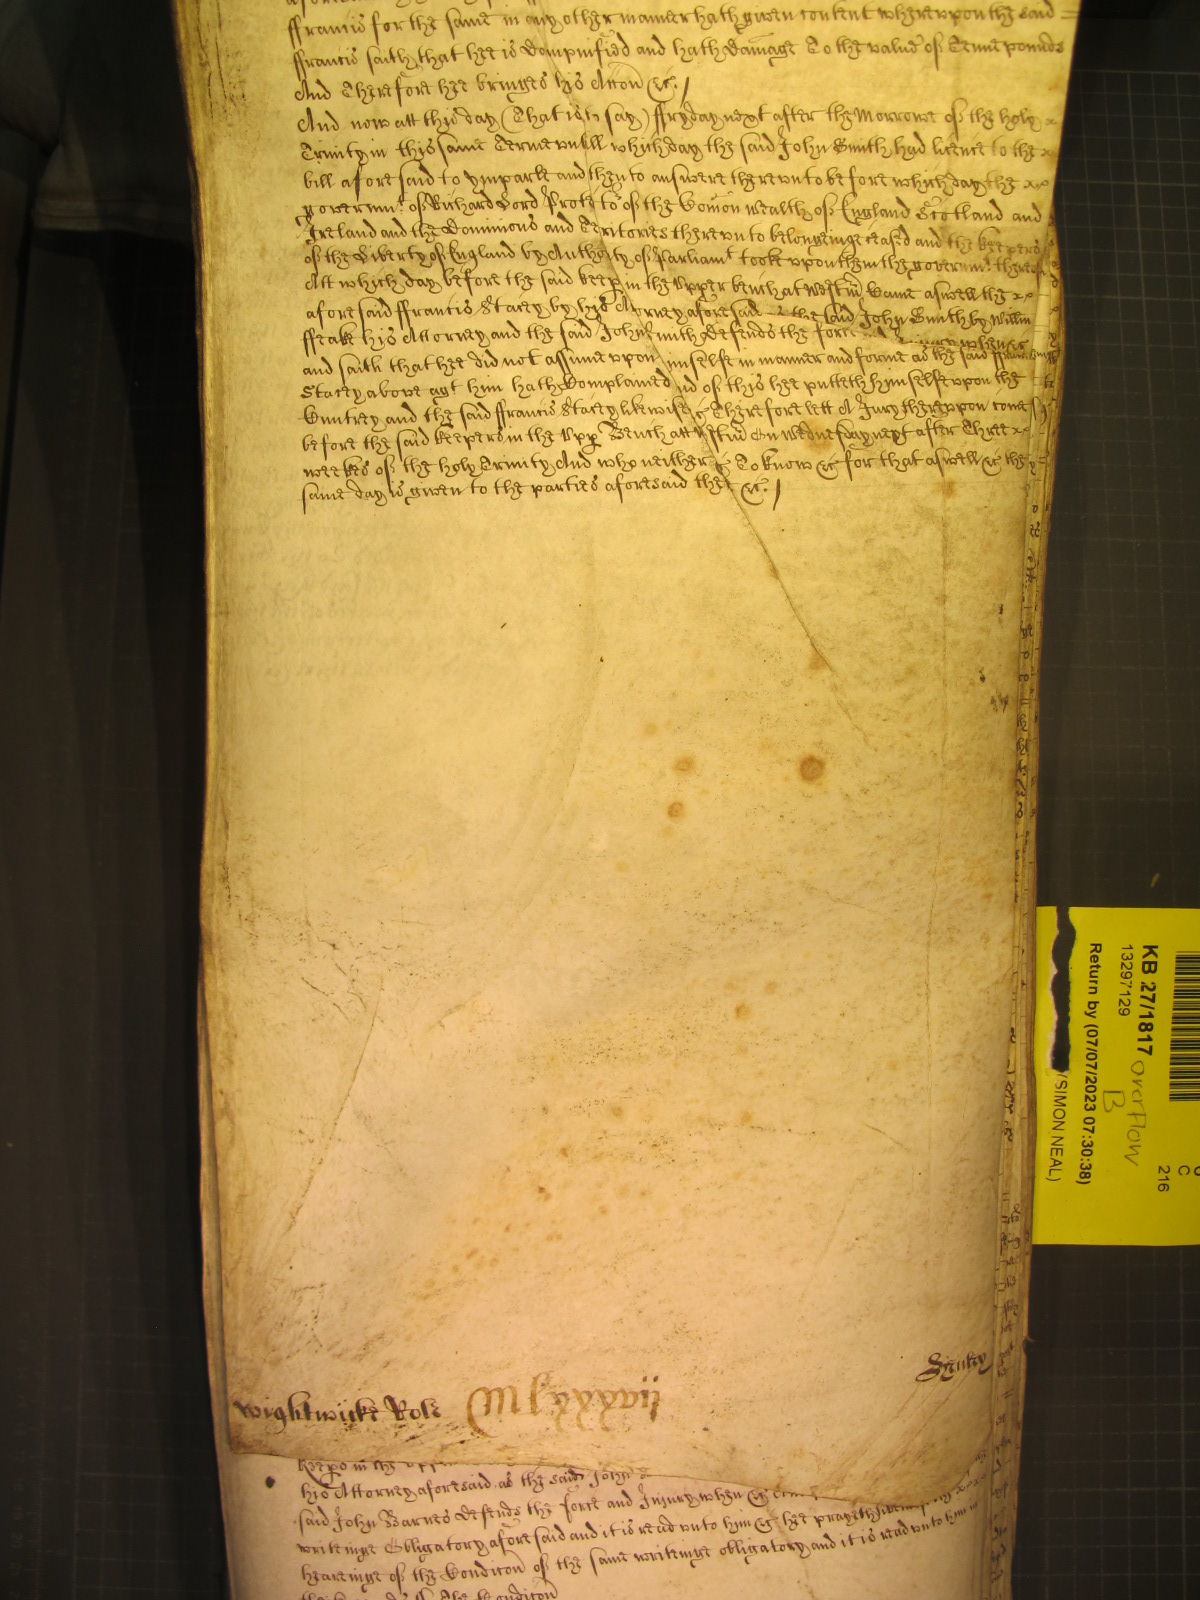 ffrancis for the same in any other manner hath given content whereupon the said
ffrancis saith that hee is dampnified and hath damage To the value of Tenne pounds
And Therefore hee bringes his Accon &c. /
And now att this day (That is to say) ffryday next after the Morrowe of the holy
Trinity in this same Terme untill which day the said John Smith had licence to the
bill aforesaid to ymparle and then to answere thereunto before which day the
governmt. of Richard Lord Protector of the Comon wealth of England Scotland and
Ireland and the Dominions and Territories thereunto belongeinge ceased and the keepers
of the Liberty of England by Authority of Parliamt tooke upon them the governmt. thereof
Att which day before the said keeps in the Upper bench at Westm Came aswell the
aforesaid ffrancis Stacey by his Attorney aforesaid the said John Smith by Willm
ffeake his Attorney and the said John Smith defends the force when &c
and saith that hee did not assume upon himselfe in manner and forme as the said ffrancis
Stacey above agt him hath Complained And of this hee putteth himselfe upon the
Cuntrey and the said ffrancis Stacey likewise &c Therefore lett A Jury thereupon come
before the said keepers in the Upp Bench att Westm on Wednesday next after Three
weekes of the holy Trinity And who neither &c To know &c for that aswell &c the
same day is given to the parties aforesaid there &c. /
Wightwicke Role
keeps in the
his Attorney aforesaid as the said John
said John Barnes defends the force and Injury when &c
writeinge Obligatory aforesaid and it is read unto him &c hee prayeth
heareinge of the Condicon of the same writeinge obligatory and it is read unto him in
KB 27/1817
13297129
Return by (07/07/2023 07:30:38)
(SIMON NEAL)
overflow
B
C
216